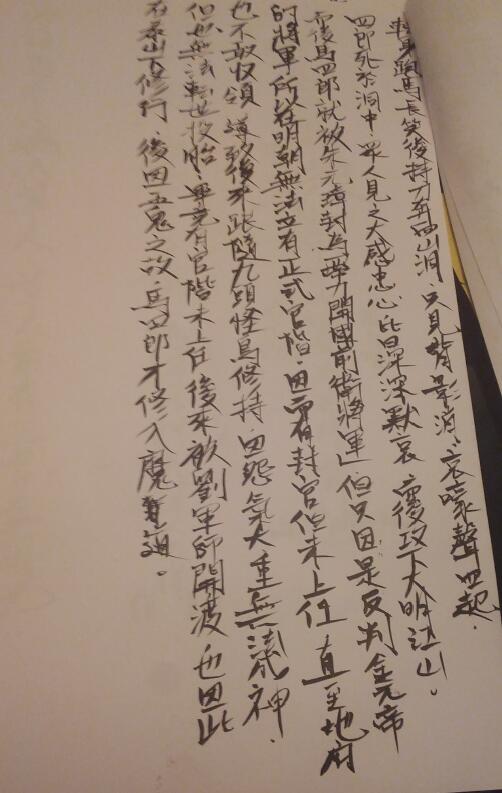 轉身跑馬長笑後持刀至四山洞，只見背影消，哀嚎聲四起。
四郎死於洞中，眾人見之大感忠心，皆深深默哀，攻下大明江山。
而後馬四郎就被朱元璋封為「開國前衛將軍」但只因是反判金元帝
的將軍所以在明朝無法立有正式官階，因而有封官但未上任，直至地府
也不敢收領，導致後來跟隨九頭怪鳥修持，因怨氣太重無法成神，
但也無法轉世投胎，畢竟有官階未上任，後來被劉軍師開渡，也因此
在泰山下修行，後因五鬼之故，馬四郎才修入魔道。